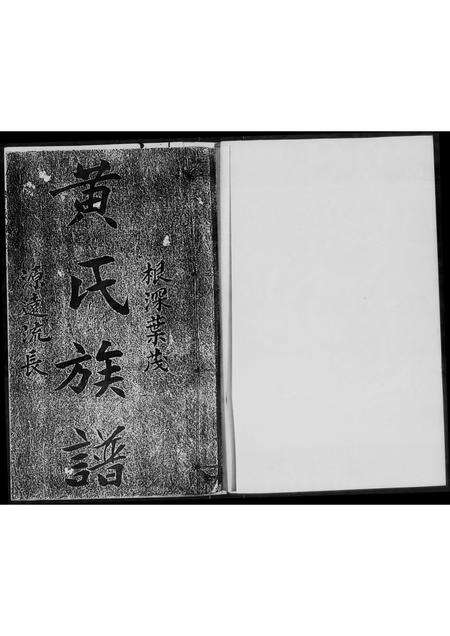 根深葉茂
黄氏族譜
源遠流長